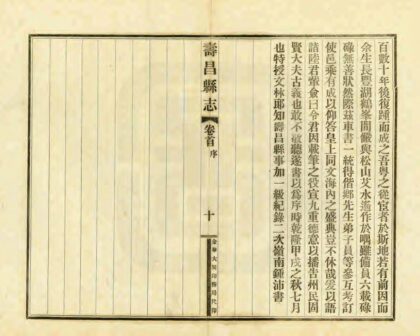 百數十年後復踵而成之吾粤之從宦者於斯地若有前因而
余生長豐湖鶴峯間儼與松山艾水遙作於喁雖備員六載碌
碌無善狀然際茲車書一統得偕鄉先生弟子員等參互考訂
使邑乘有成以仰答皇上同文海內之盛典豈不休哉爰以語
諸陸君輩僉曰令君因載筆之役宣九重德意以播告州民固
賢大夫古義也敢不敬聽遂書以為序時乾隆甲戌之秋七月
也特授文林郎知壽昌縣事加一級紀錄二次嶺南鍾沛書
壽昌縣志 卷首 序 十
金華大同印務局代印